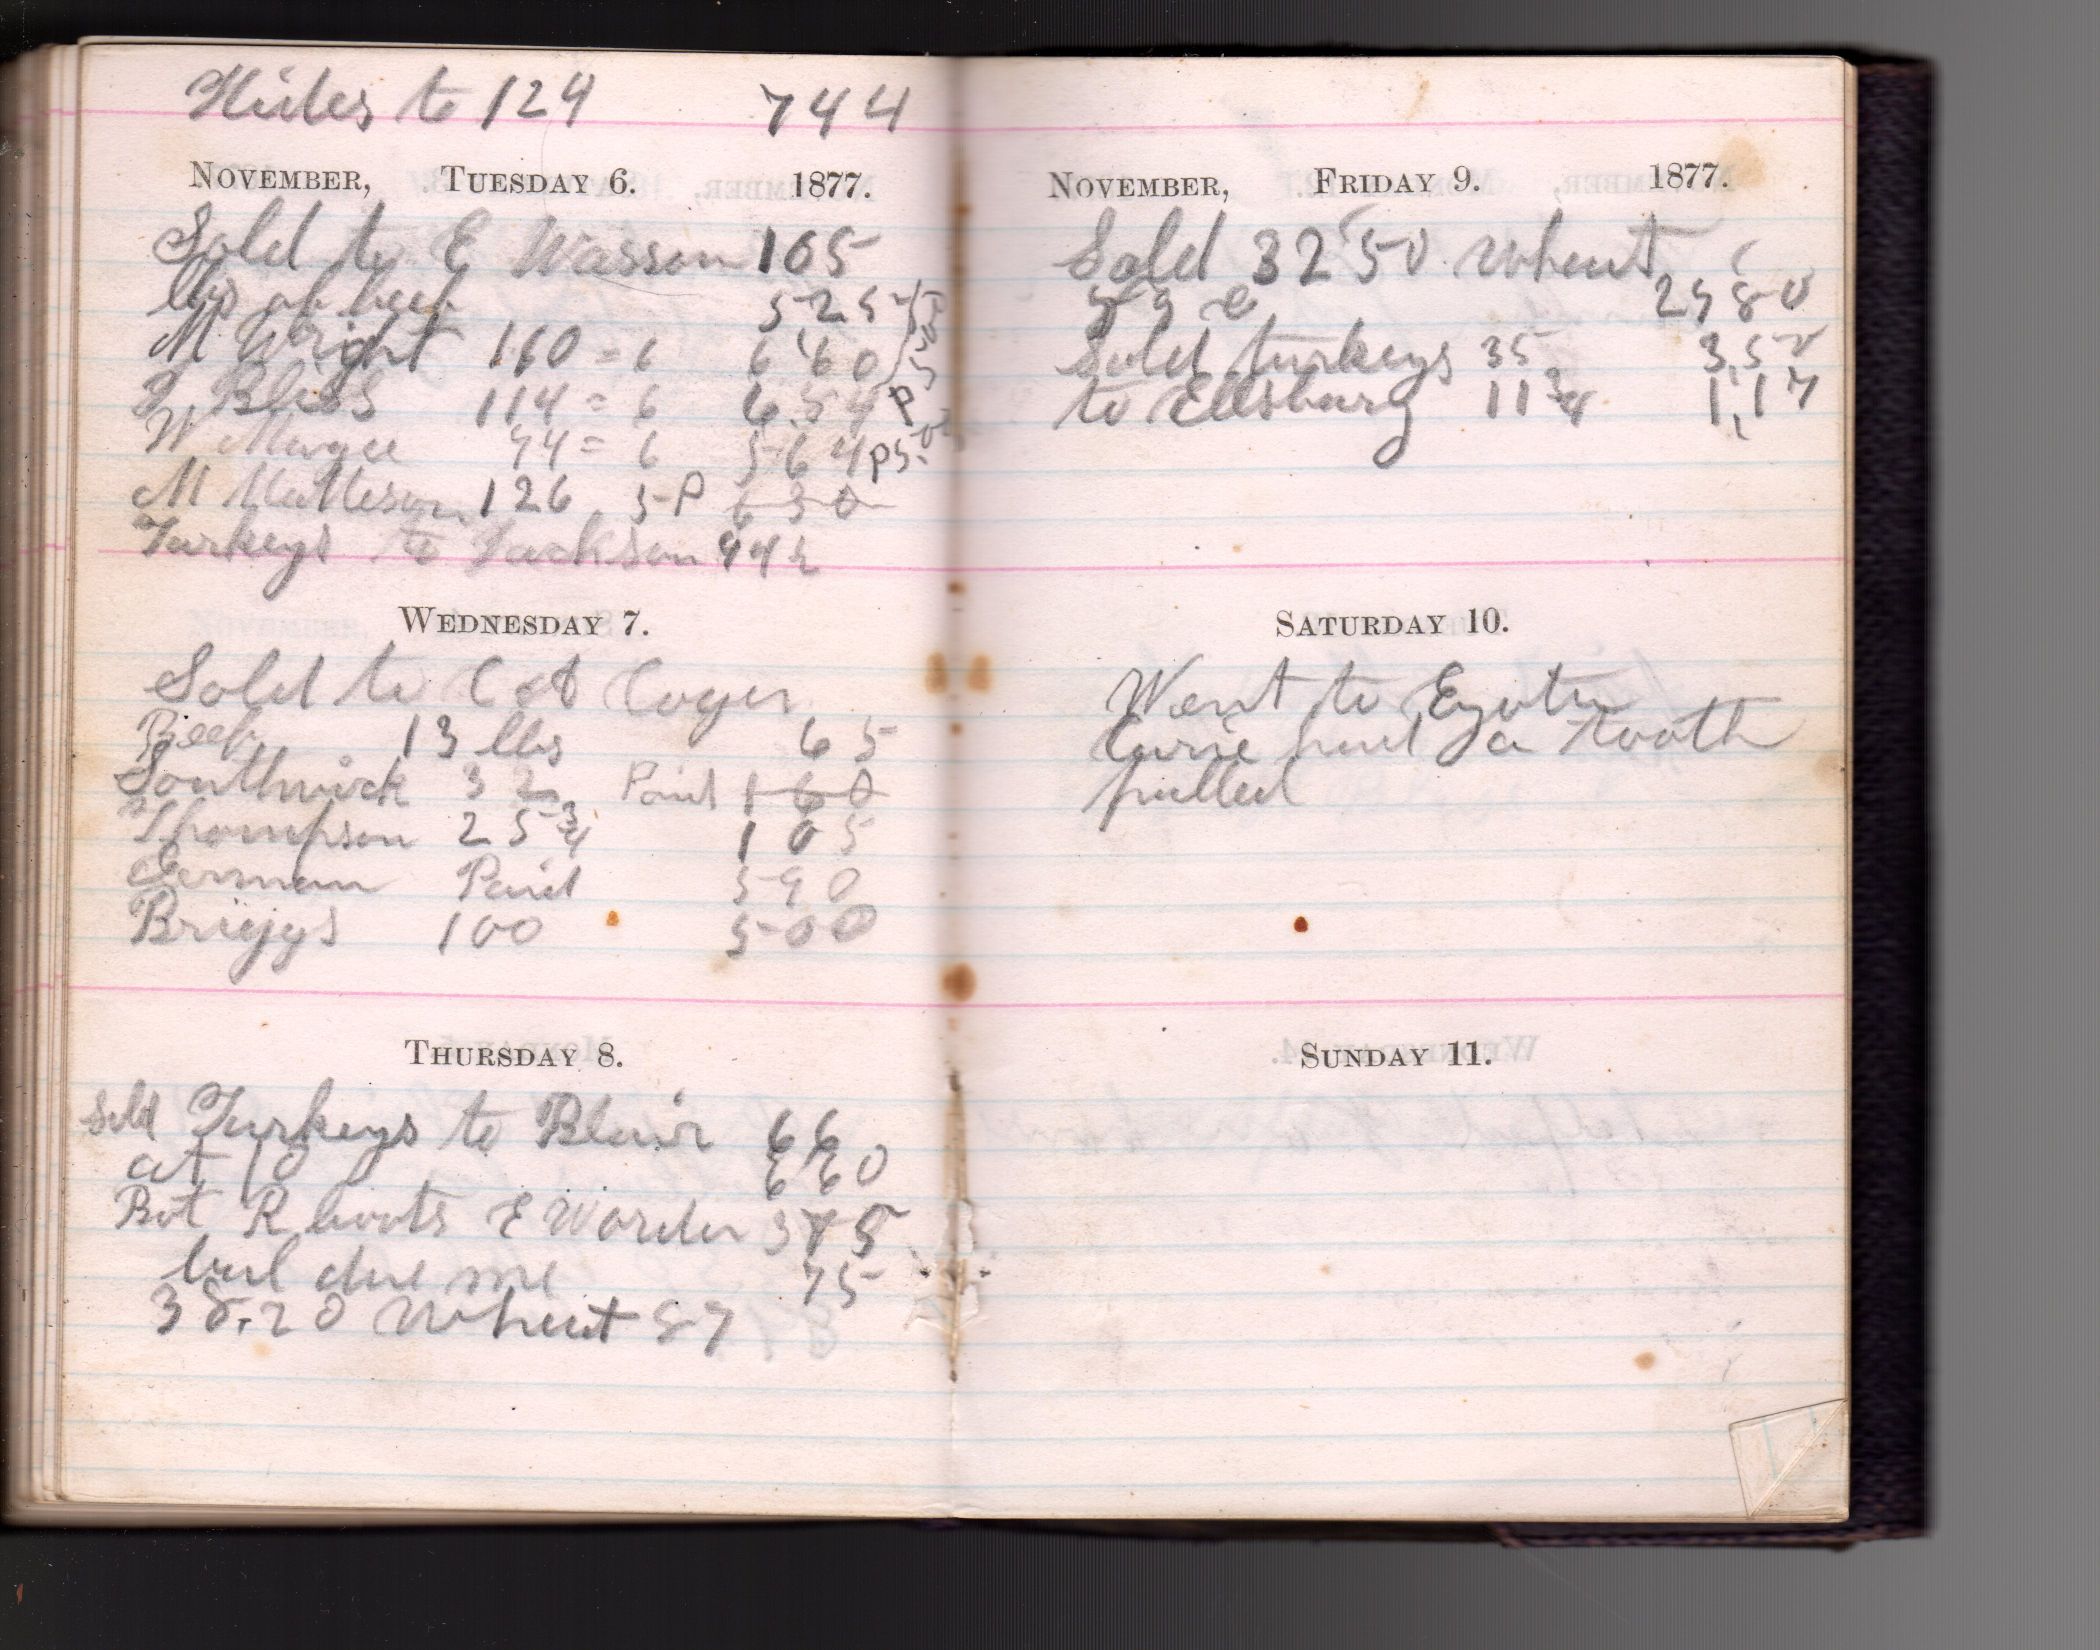 Hides to 124 744
November, Tuesday 6. 1877.
Sold to E Wasson 105
lbs of beef 525
M Wright 110 = 6 660
Bliss 114 = 6 6.84 P
W Magee 94 = 6 564 P 5.0
M Matteson 126 5 P 630
Turkeys to Jackson 442
Wednesday 7.
Sold to C A Coyer
Beef 13 lbs 65
Southwick 32 Paid 160
Thompson 25 3/4 1 05
German Paid 590
Briggs 100 500
Thursday 8.
Sold Turkeys to Blair 66
at 10 660
Bot R boots E Worden 375
bal due me 75
38.20 Wheat 87
November, Friday 9. 1877.
Sold 32 50 wheat
2580
Sold turkeys 35 3,50
to Ellsbury 11 3/4 1,17
Saturday 10.
Went to Eyota
had a tooth
pulled
Sunday 11.